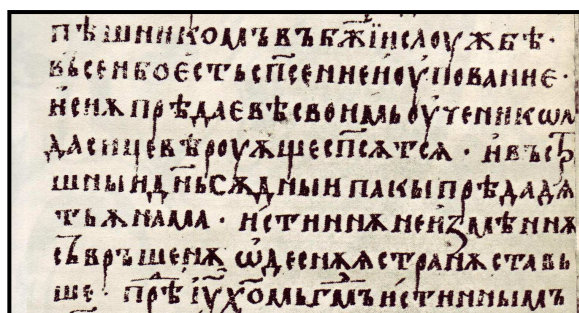 пѣшникомъ въ бж҃їи слоужбѣ ·
въ сеи бо єсть сп҃сенне и оупованне ·
и сеѭ прѣдаєвѣ своимь оученикѡм
да сице вѣроуѭще сп҃сѧтсѧ · и въ
шныи дн҃ь сѫдныи пакы прѣдадѧ
ть ѭ нама · истинѫ неизмѣннѫ
съвръшенѫ ѡдеснѫѧ странѫ ставь
ше · прѣ і҃у х҃омь г҃мъ истиннымъ